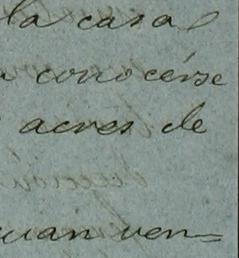 la casa
conocerse
acres de
uan ven=